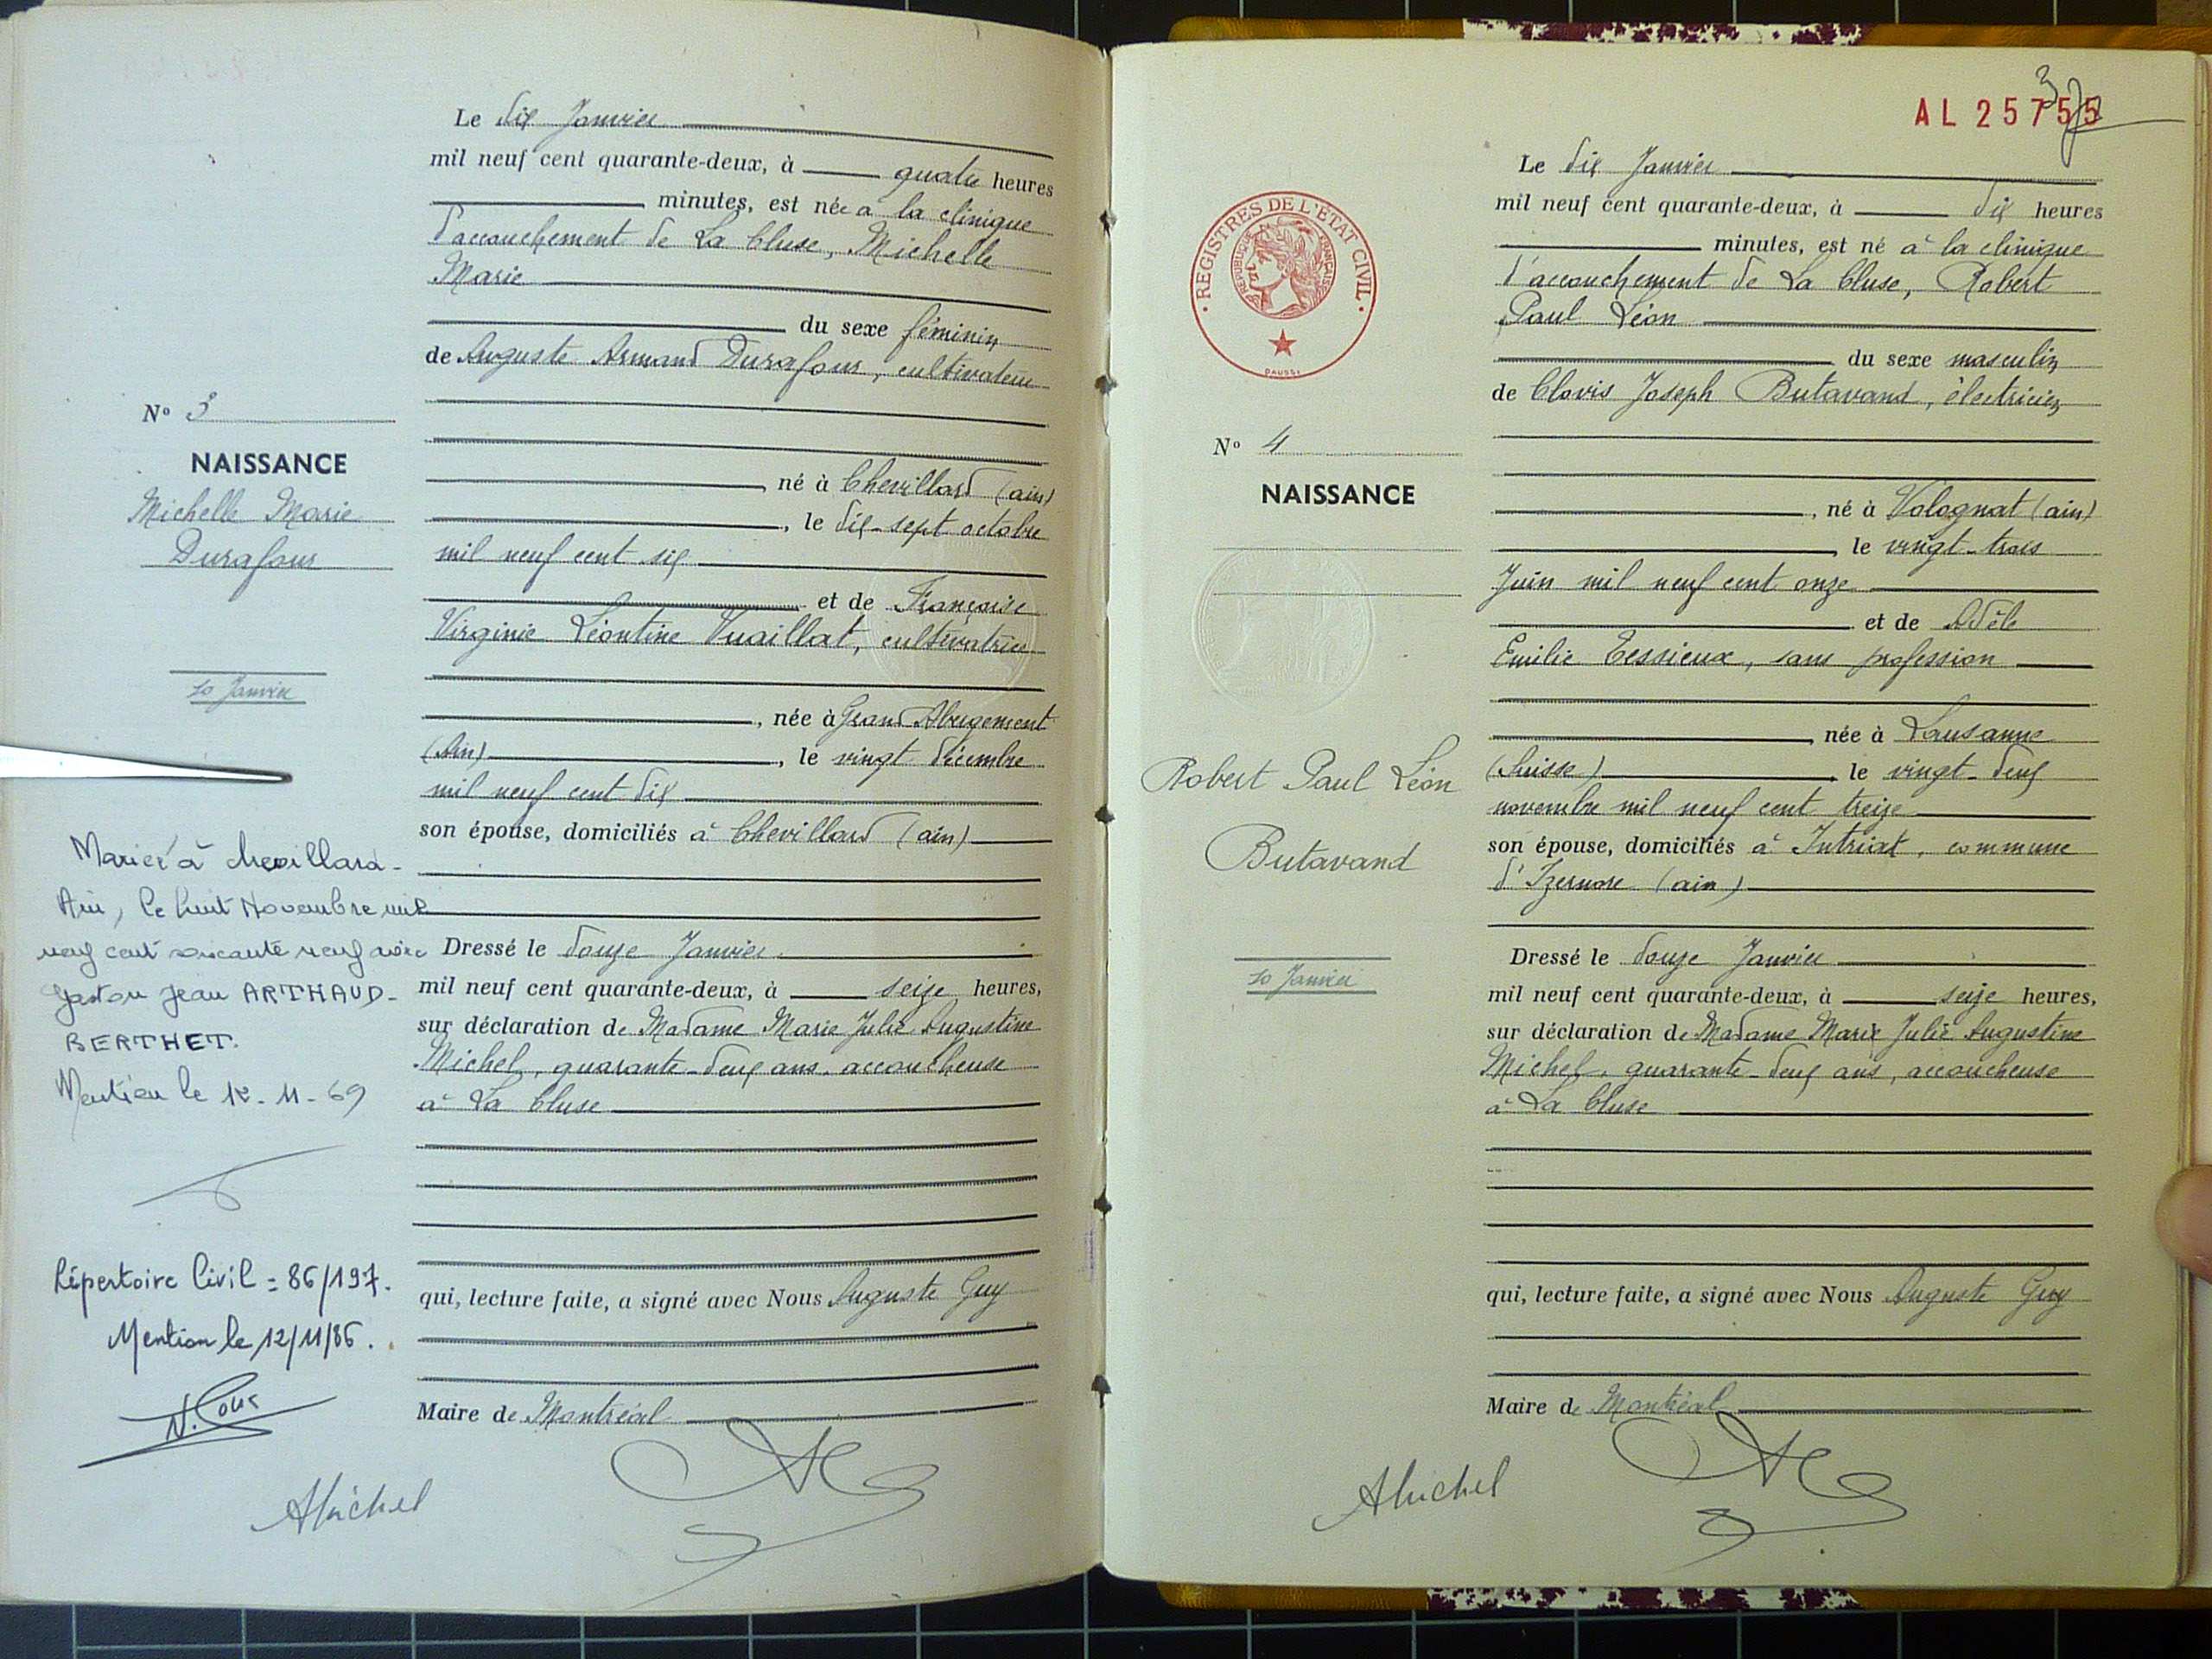 Le dix Janvier
mil neuf cent quarante-deux, à quatre heures
minutes, est née à la clinique
d'accouchement de La Cluse, Michelle
Marie
du sexe féminin
de Auguste Armand Durafour, cultivateur
né à Chevillard (ain)
, le dix-sept octobre
mil neuf cent six
et de Françoise
Virginie Léontine Vuaillat, cultivatrice
, née à Grand Abergement
(Ain) , le vingt décembre
mil neuf cent dix
son épouse, domiciliés à Chevillard (ain)
Dressé le douze Janvier
mil neuf cent quarante-deux, à seize heures,
sur déclaration de Madame Marie Julie Augustine
Michel, quarante-deux ans, accoucheuse
à La Cluse
qui, lecture faite, a signé avec Nous Auguste Guy
Maire de Montréal
N° 3
NAISSANCE
Michelle Marie
Durafour
10 Janvier
Mariée à Chevillard-
Ain, le huit Novembre mil
neuf cent soixante neuf avec
Gaston Jean ARTHAUD-
BERTHET.
Mention le 12-11-69
Répertoire Civil = 86/197.
Mention le 12/11/86.
AMichel
AL 25755
3
Le dix Janvier
mil neuf cent quarante-deux, à dix heures
minutes, est né à la clinique
d'accouchement de La Cluse, Robert
Paul Léon
du sexe masculin
de Clovis Joseph Butavand, électricien
, né à Volognat (ain)
, le vingt-trois
Juin mil neuf cent onze
et de Adèle
Emilie Tessieux, sans profession
, née à Lausanne
(Suisse) , le vingt-deux
novembre mil neuf cent treize
son épouse, domiciliés à Intriat, commune
d'Izernore (ain)
Dressé le douze Janvier
mil neuf cent quarante-deux, à seize heures,
sur déclaration de Madame Marie Julie Augustine
Michel, quarante-deux ans, accoucheuse
à La Cluse
qui, lecture faite, a signé avec Nous Auguste Guy
Maire de Montréal
REGISTRES DE L'ÉTAT CIVIL
REPUBLIQUE FRANÇAISE
DAUSSI
N° 4
NAISSANCE
Robert Paul Léon
Butavand
10 Janvier
AMichel